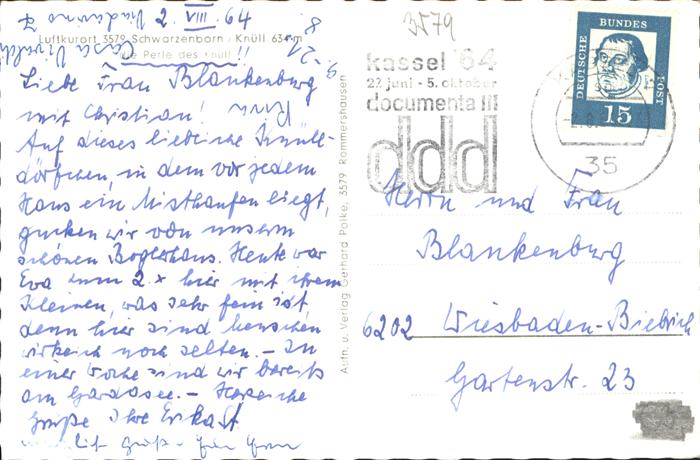 2. VIII. 64
3579
Luftkurort 3579 Schwarzenborn / Knüll 634 m
"Die Perle des Knüll"
Liebe Frau Blankenburg
mit Christian!
Auf dieses liebliche Knüll-
dörfchen, in dem vor jedem
Haus ein Misthaufen liegt,
gucken wir von unserm
schönen Boglerhaus. Heute war
Eva zum 2. x hier mit ihrem
Kleinen, was sehr fein ist,
denn hier sind Menschen
wirklich noch selten. – In
einer Woche sind wir bereits
am Gardasee. – Herzliche
Grüße Ihre
Aufn. u. Verlag Gerhard Polke, 3579 Rommershausen
kassel '64
27. juni - 5. oktober
documenta III
ddd
DEUTSCHE BUNDESPOST
15
35
Herrn und Frau
Blankenburg
6202 Wiesbaden-Biebrich
Gartenstr. 23